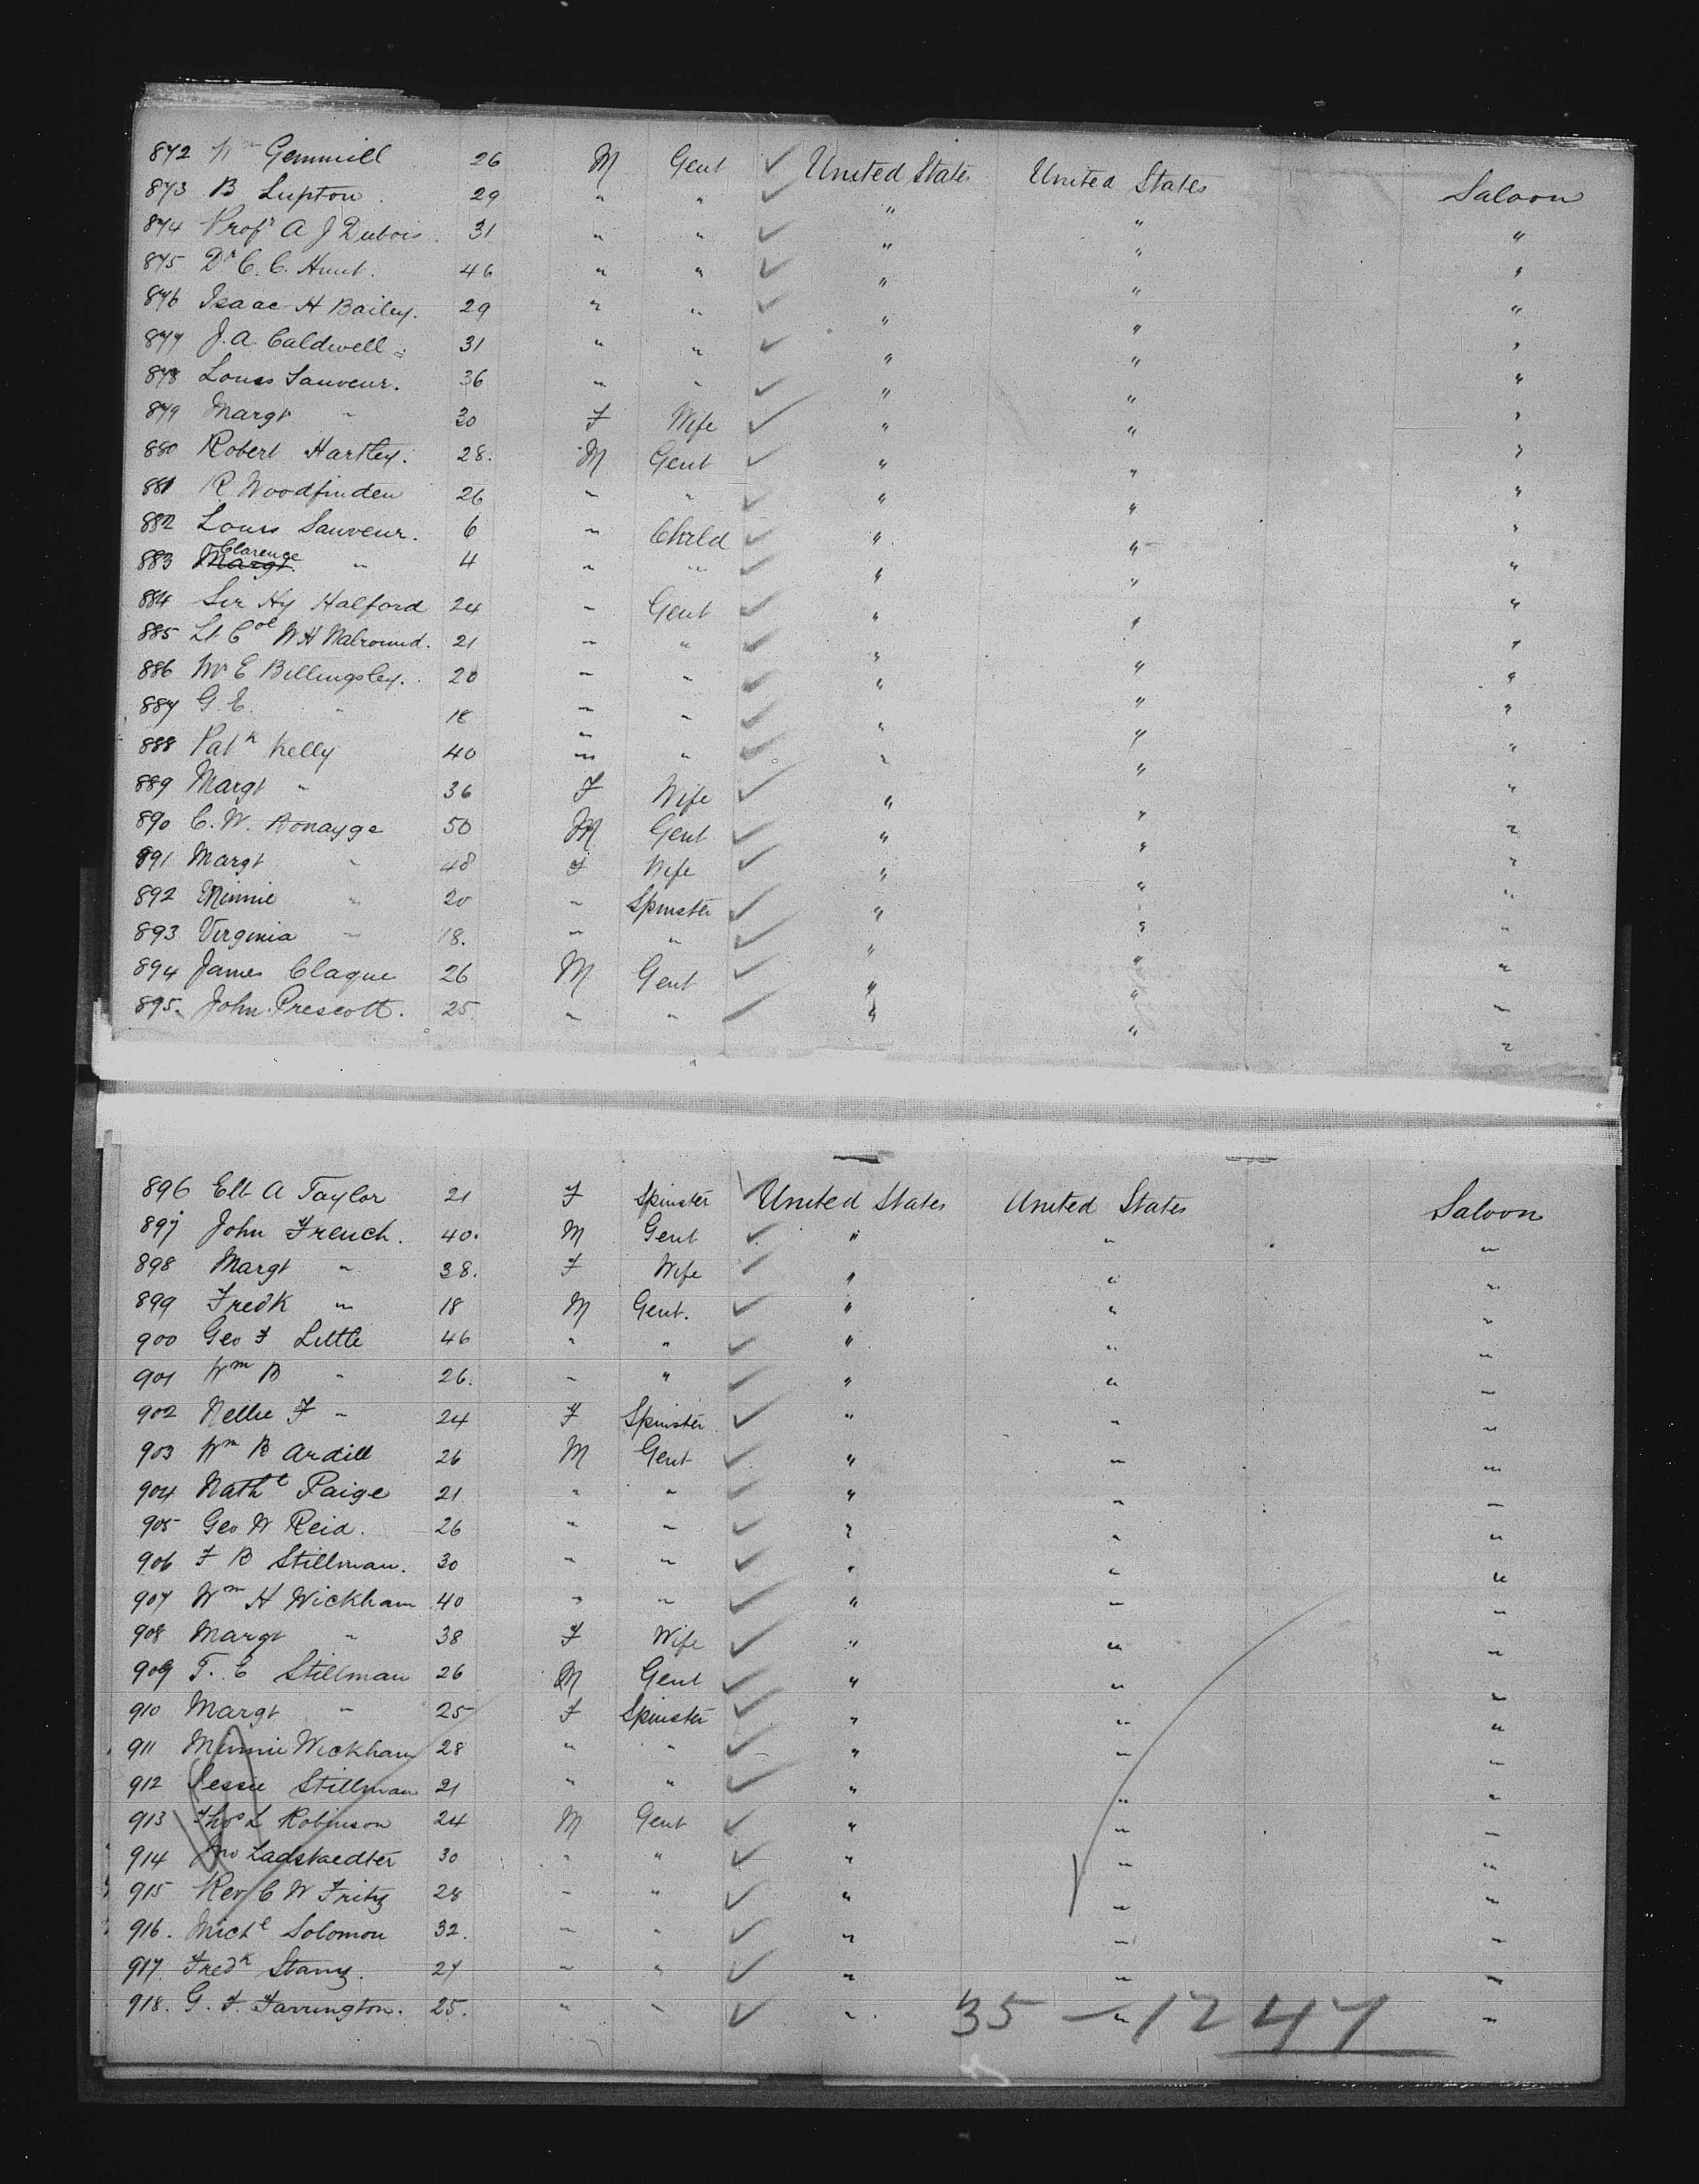 872 Wm Gemmill 26 M Gent ✓ United States United States Saloon
873 B Lupton. 29 " " ✓ " " "
874 Profr A J Dubois. 31 " " ✓ " " "
875 Dr C. C. Hunt. 46 " " ✓ " " "
876 Isaac H Bailey. 29 " " ✓ " " "
877 J. A. Caldwell. 31 " " ✓ " " "
878 Louis Sauveur. 36 " " ✓ " " "
879 Margt " 30 F Wife ✓ " " "
880 Robert Hartley. 28. M Gent ✓ " " "
881 R Woodfinden 26 " " ✓ " " "
882 Louis Sauveur. 6 " Child ✓ " " "
Clarence
883 Margt " 4 " " ✓ " " "
884 Sir Hy Halford 24 " Gent ✓ " " "
885 Lt Col W H Walround. 21 " " ✓ " " "
886 E Billingsley. 20 " " ✓ " " "
887 G. E. " 18 " " ✓ " " "
888 Patk Kelly 40 " " ✓ " " "
889 Margt " 36 F Wife ✓ " " "
890 C. W. Ronayge 50 M Gent ✓ " " "
891 Margt " 48 F Wife ✓ " " "
892 Minnie " 20 " Spinster ✓ " " "
893 Virginia " 18. " " ✓ " " "
894 James Clague 26 M Gent ✓ " " "
895. John Prescott. 25. " " ✓ " " "
896 Elt A Taylor 21 F Spinster ✓ United States United States Saloon
897 John French. 40. M Gent ✓ " " "
898 Margt " 38. F Wife ✓ " " "
899 Fredk " 18 M Gent. ✓ " " "
900 Geo F Little 46 " " ✓ " " "
901 Wm B " 26. " " ✓ " " "
902 Nellie F " 24 F Spinster ✓ " " "
903 Wm B Ardill 26 M Gent ✓ " " "
904 Nathl Paige 21. " " ✓ " " "
905 Geo W Reid. 26 " " ✓ " " "
906 F B Stillman. 30 " " ✓ " " "
907 Wm H Wickham 40 " " ✓ " " "
908 Margt " 38 F Wife ✓ " " "
909 T. E Stillman 26 M Gent ✓ " " "
910 Margt " 25 F Spinster ✓ " " "
911 Minnie Wickham 28 " " ✓ " " "
912 Jessie Stillman 21 " " ✓ " " "
913 Thos L Robinson 24 M Gent ✓ " " "
914 Jno Ladstaedter 30 " " ✓ " " "
915 Rev C W Fritz 28 " " ✓ " " "
916. Michl Solomon 32. " " ✓ " " "
917. Fredk 27 " " ✓ " " "
918. G. F. Farrington. 25. " " ✓ " " "
35 — 1247